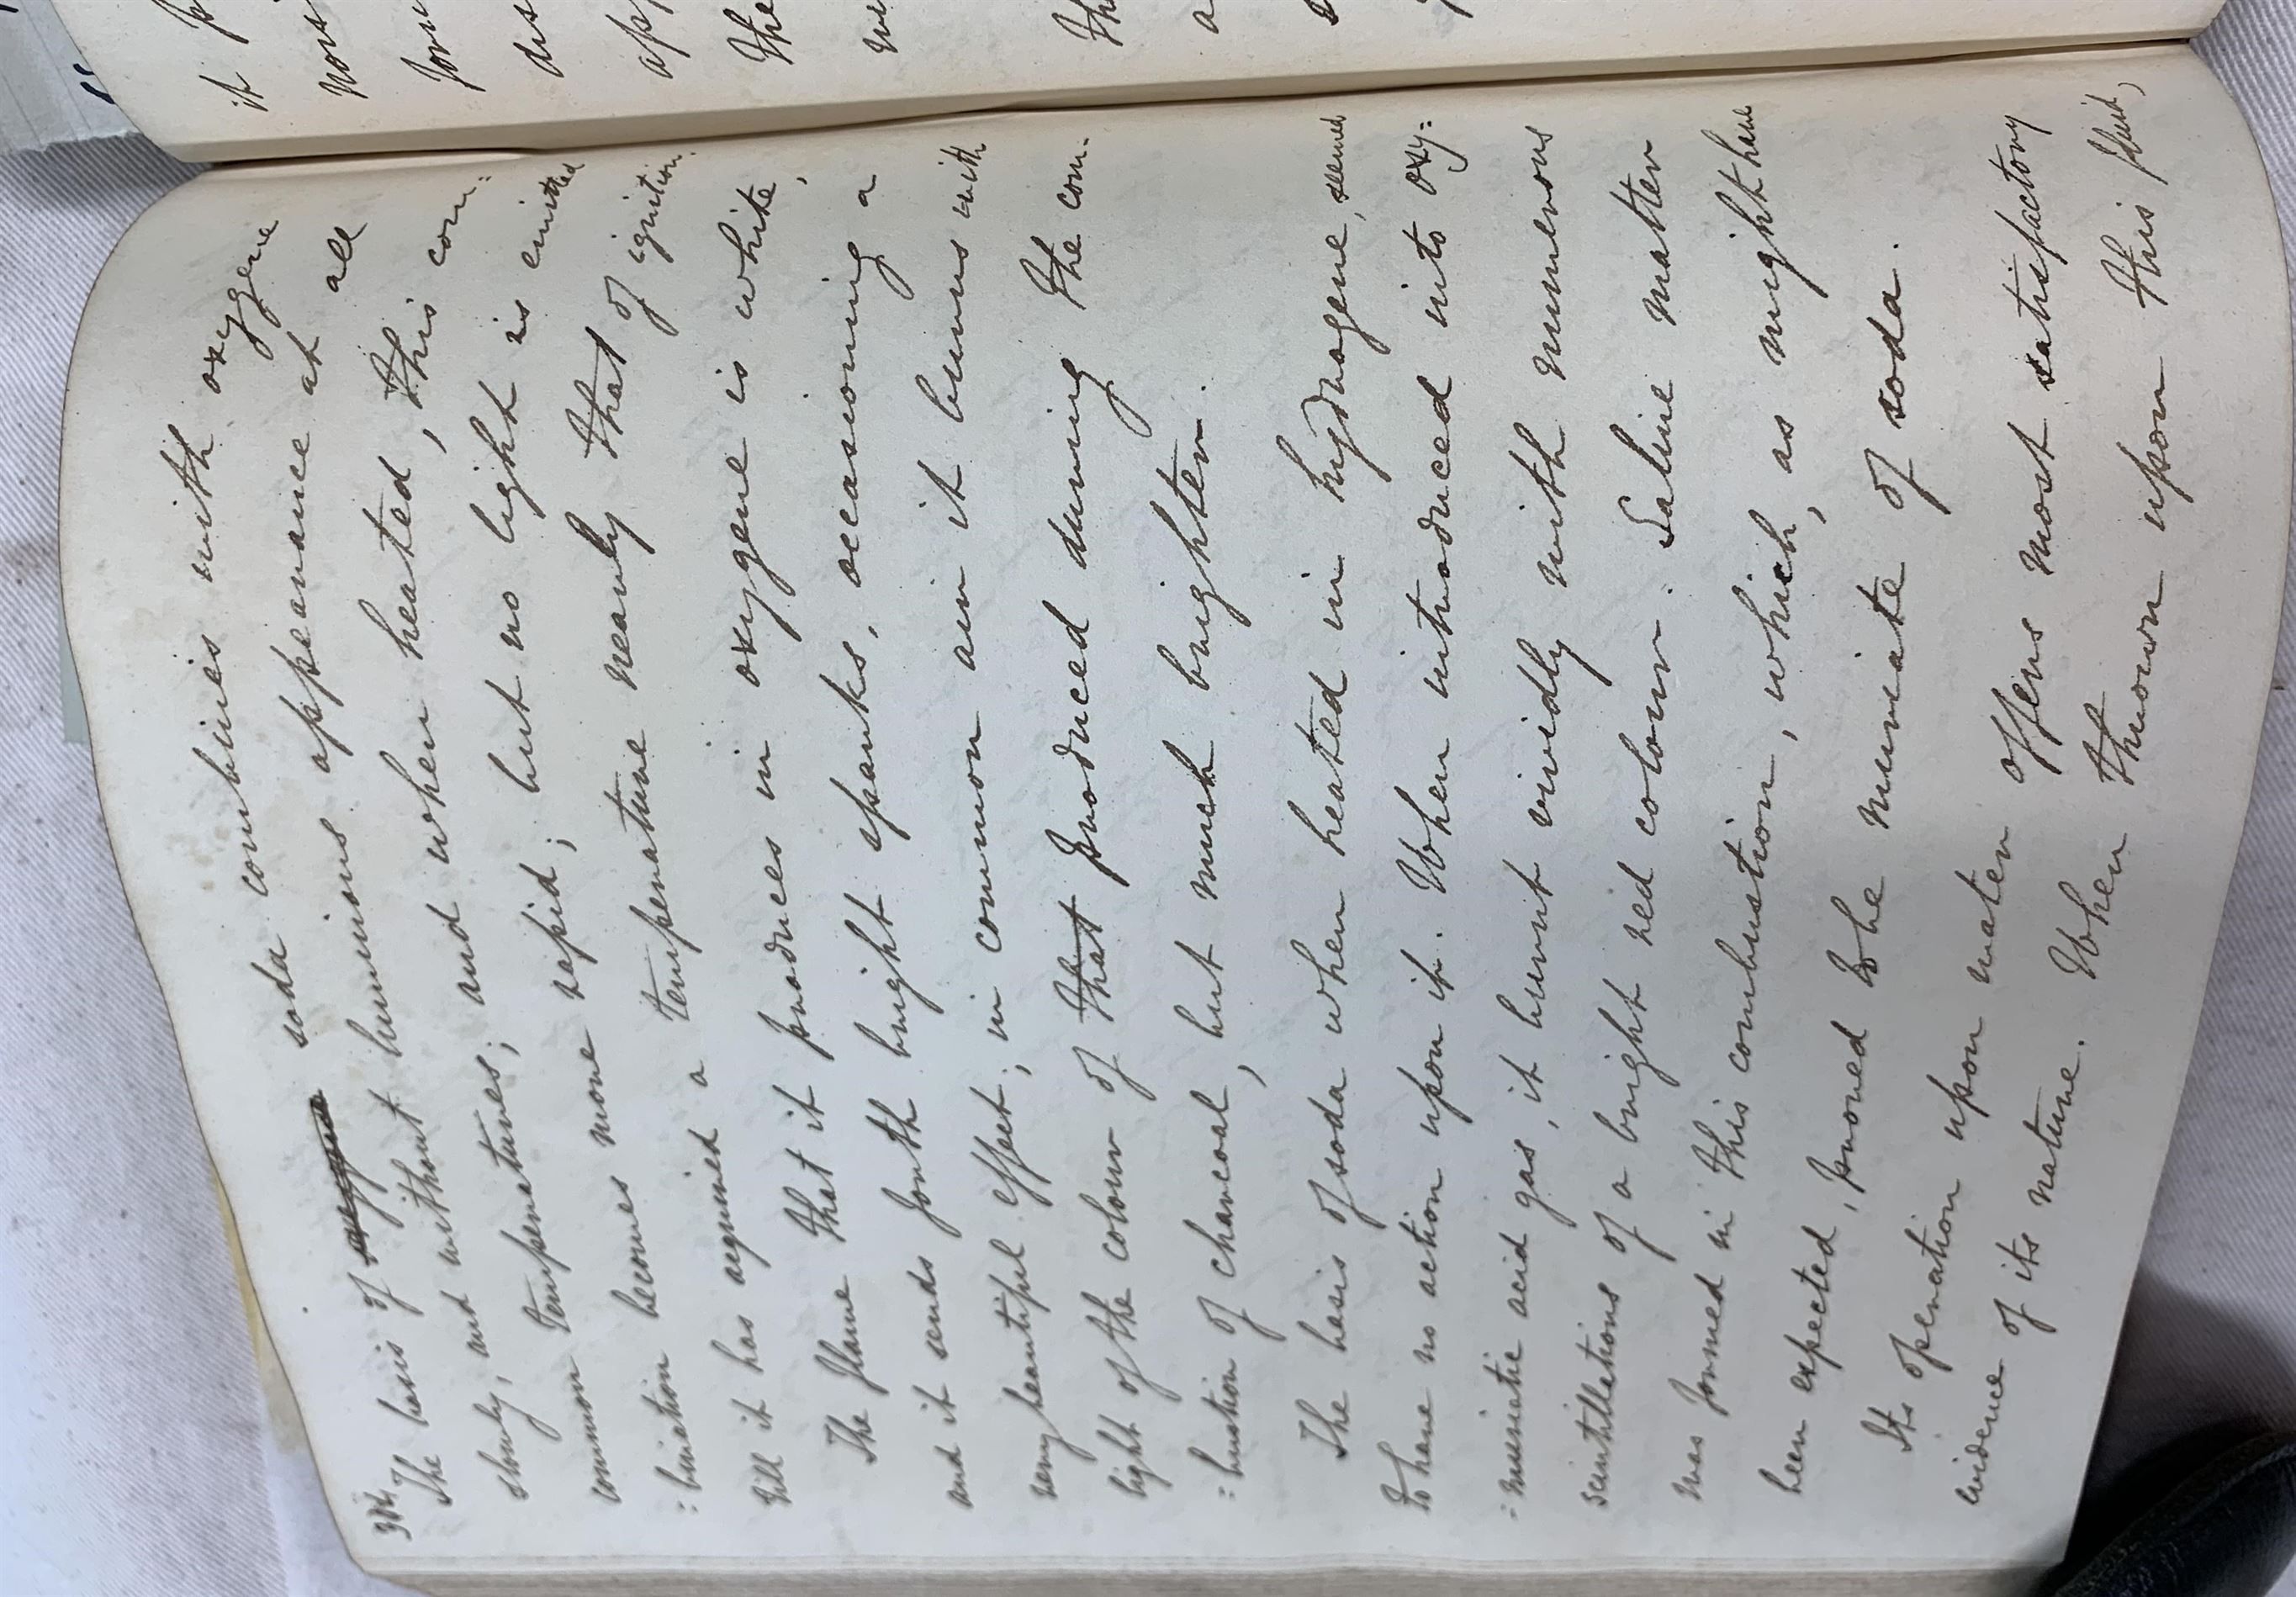 304.
The basis of soda combines with oxygene
slowly, and without luminous appearance at all
common temperatures; and when heated, this com:
:bination becomes more rapid; but no light is emitted
till it has acquired a temperature nearly that of ignition.
The flame that it produces in oxygene is white,
and it sends forth bright sparks, occasioning a
very beautiful effect; in common air it burns with
light of the colour of that produced during the com:
:bustion of charcoal, but much brighter.
The basis of soda when heated in hydrogene, seemed
to have no action upon it. When introduced into oxy:
:muriatic acid gas, it burnt vividly with numerous
scintillations of a bright red colour. Saline matter
was formed in this combustion, which, as might have
been expected, proved to be muriate of soda.
Its operation upon water offers most satisfactory
evidence of its nature. When thrown upon this fluid,
it
a